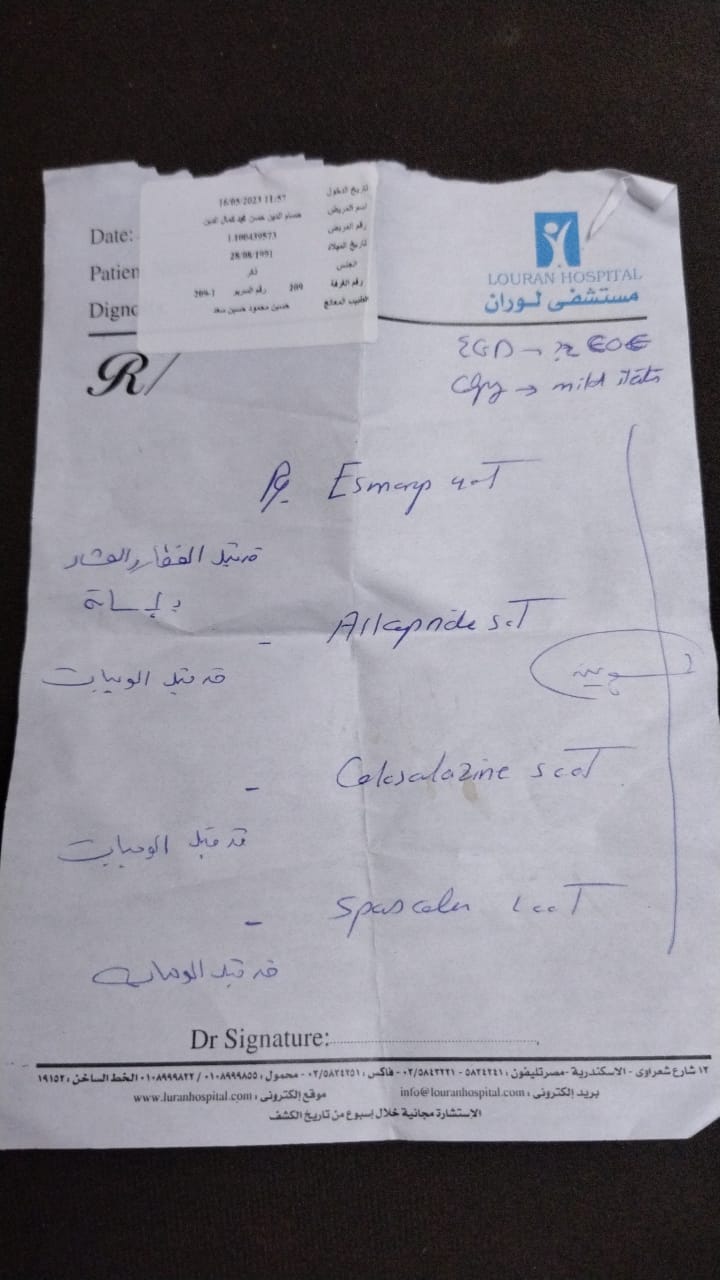 تاريخ الدخول 16/05/2023 11:57
اسم المريض حسام الدين حسن محمد كمال الدين
رقم المريض 1.100439573
تاريخ الميلاد 28/08/1991
الجنس ذكر
رقم الغرفة 209 رقم السرير 209-1
الطبيب المعالج حسين محمود حسين سعد
Date:
Patien
Digno
LOURAN HOSPITAL
مستشفى لوران
R/
EGD →
→ mild
Esmorap 40T
قبل الفطار والعشاء
5.T
قبل الوجبات
Colosalazine 500T
قبل الوجبات
100T
قبل الوجبات
Dr Signature:
١٢ شارع شعراوى - الاسكندرية - مصر تليفون : ٥٨٢٤٢٤١ - ٠٣/٥٨٤٢٢٢١ - فاكس : ٠٣/٥٨٢٤٢٥١ - محمول : ٠١٠٨٩٩٩٨٥٥ / ٠١٠٨٩٩٩٨٢٢ الخط الساخن : ١٩١٥٢
بريد إلكترونى : info@louranhospital.com موقع إلكترونى : www.luranhospital.com
الاستشارة مجانية خلال إسبوع من تاريخ الكشف